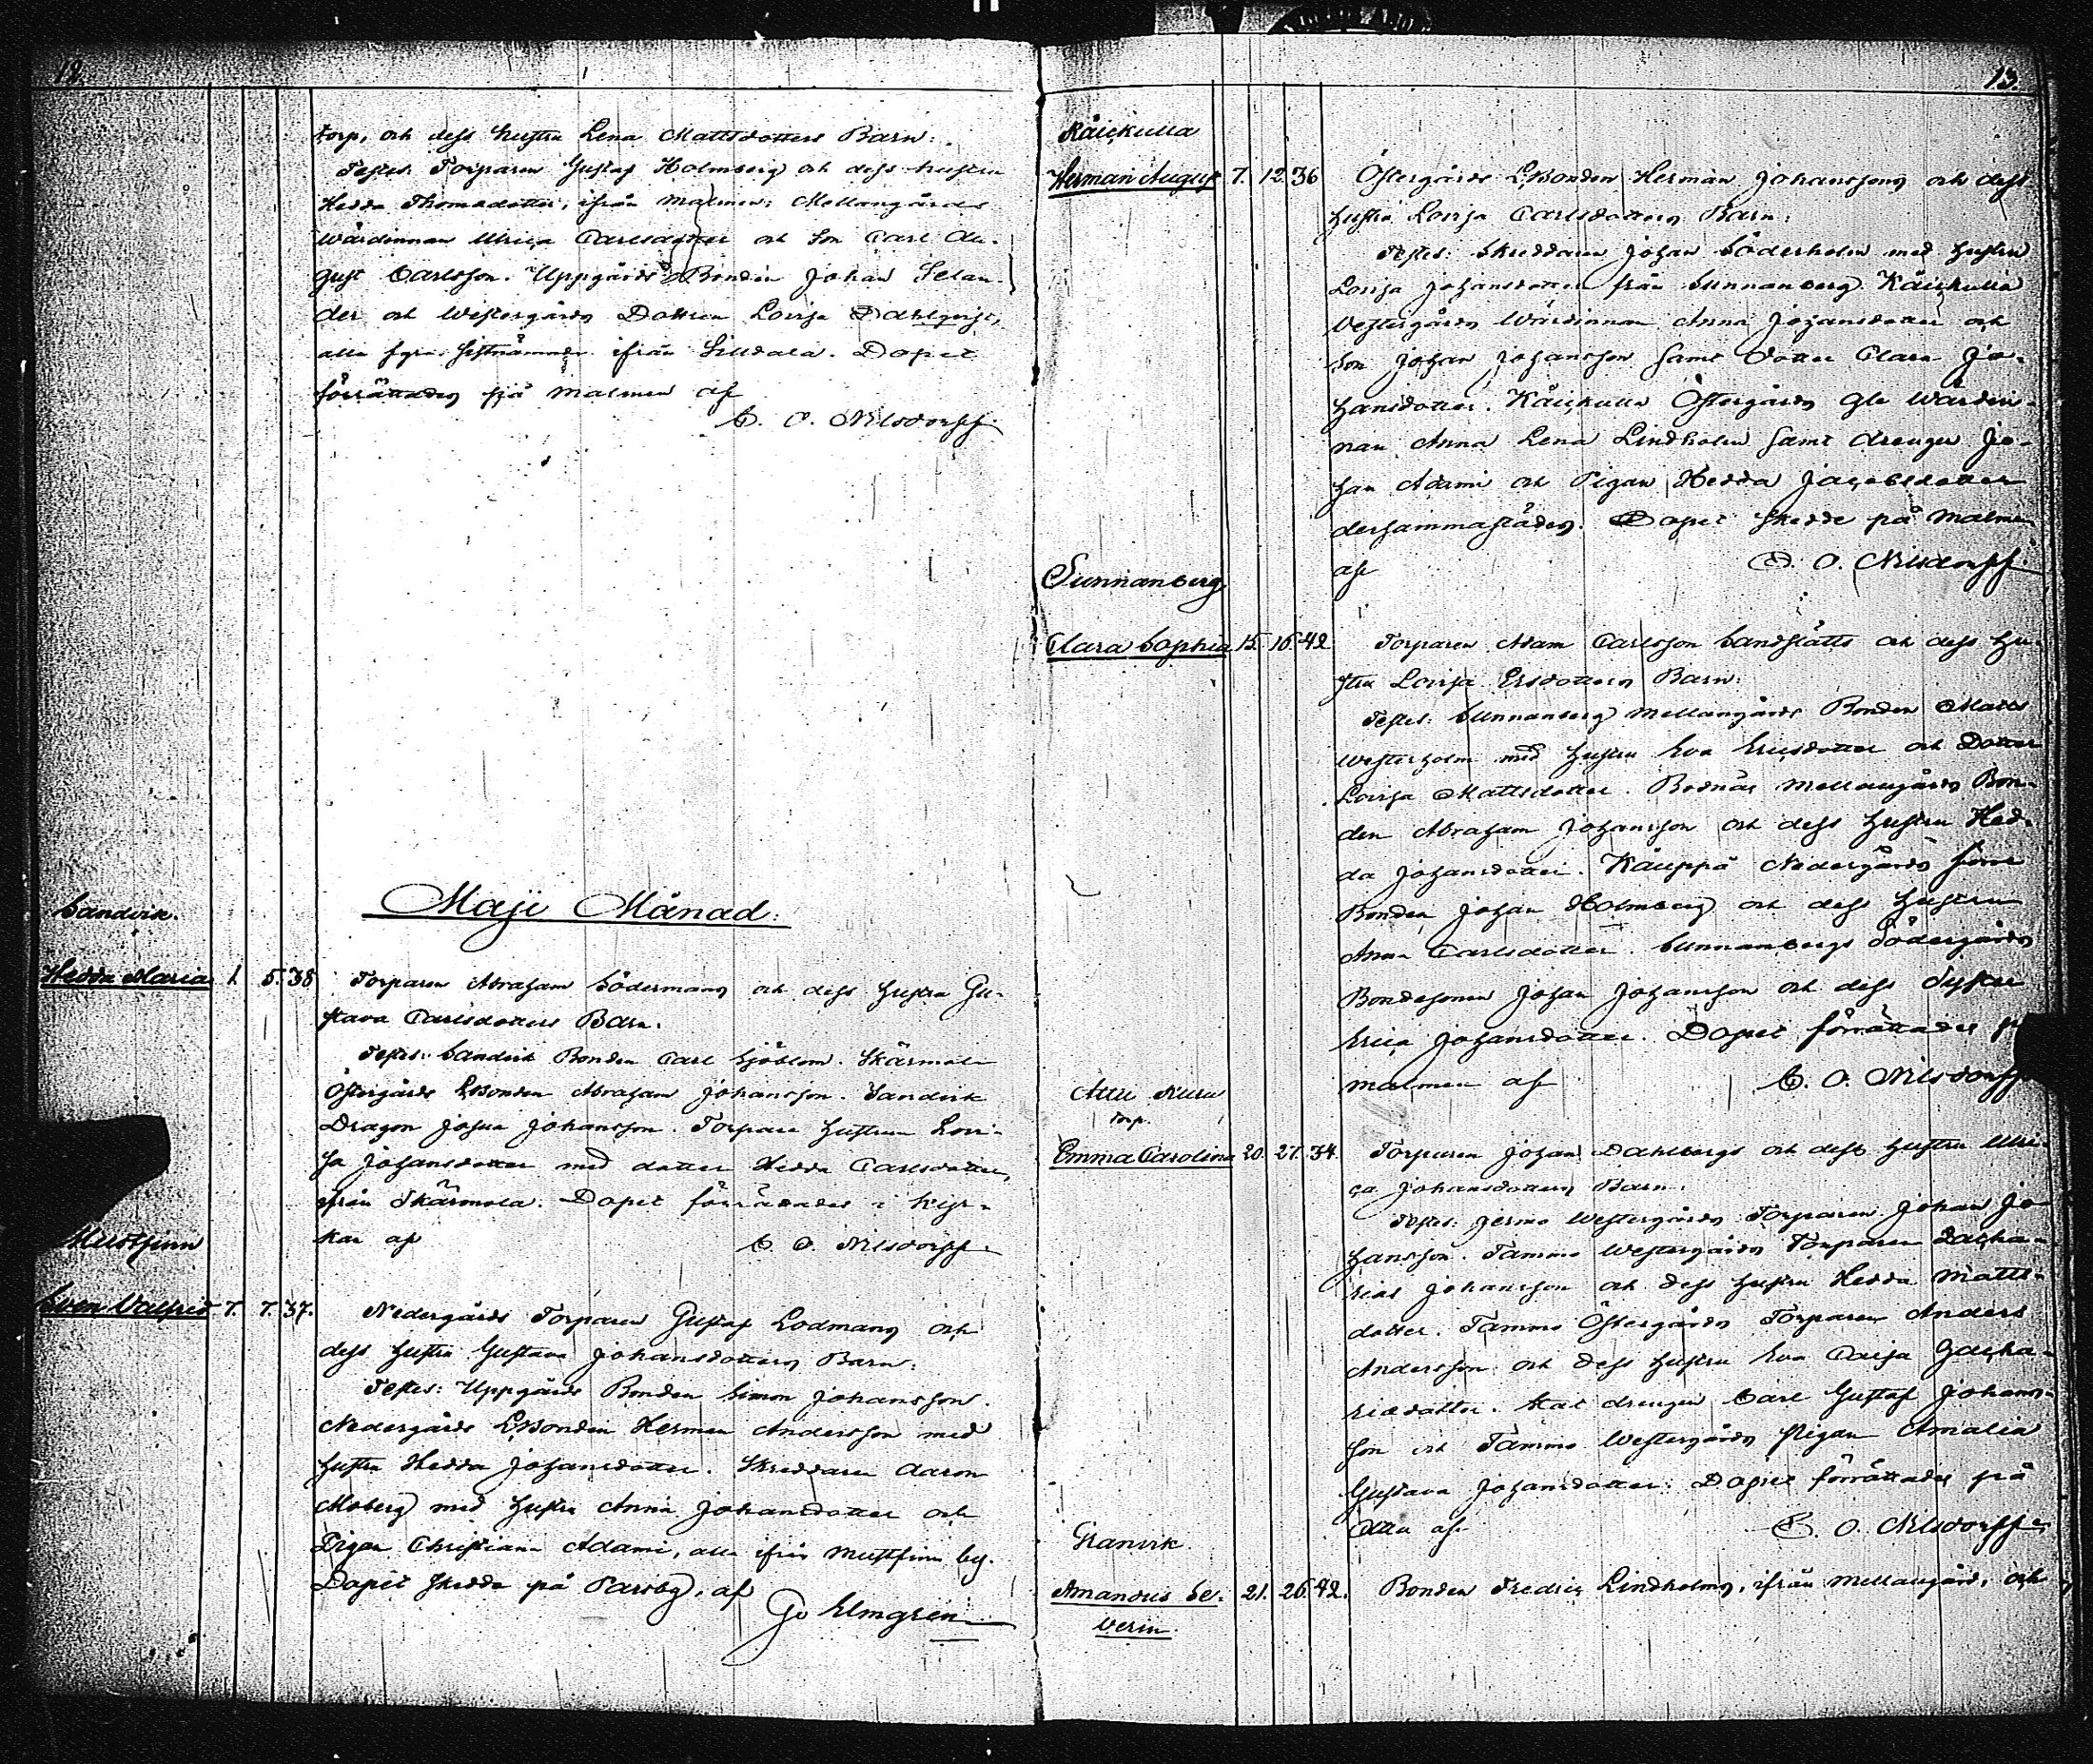 12.
torp, och dess hustru Lena Mattsdotters Barn.
Testes: Torparen Gustaf Holmberg och dess hustru
Hedda Thomasdotter, ifrån Malmen; Mellangårds
Wärdinnan Ulrica Carlsdotter och Son Carl Au-
gust Carlsson. Uppgårds Bonden Johan Selan-
der och Westergårds Dottren Lovisa Dahlqvist,
alla fyra sistnämnde ifrån Lilldala. Dopet
förrättades på Malmen af
C. O. Nilsdorff.
Maji Månad.
Sandvik.
Hedda Maria 1. 5. 38 Torparen Abraham Södermans och dess hustru Gu-
stava Carlsdotters Barn.
Testes: Sandvik Bonden Carl Sjöblom. Skärmola
Östergårds LBonden Abraham Johansson. Sandvik
Dragon Josua Johansson. Torpare hustrun Lovi-
sa Johansdotter med dotter Hedda Carlsdotter,
ifrån Skärmola. Dopet förrättades i Kyr-
kan af C. O. Nilsdorff.
Mustfinn
Sven Valfrid 7. 7. 37. Nedergårds Torparen Gustaf Lodmans och
dess hustru Gustava Johansdotters Barn.
Testes: Uppgårds Bonden Simon Johansson.
Nedergårds LBonden Herman Andersson med
hustru Hedda Johansdotter. Skreddaren Aaron
Moberg med hustru Anna Johansdotter och
Pigan Christiana Adami, alla ifrån Mustfinn by.
Dopet skedde på Parsby, af
Elmgren
13.
Räickulla
Herman August 7. 12. 36 Östergårds LBonden Herman Johanssons och dess
hustru Lovisa Carlsdotters Barn.
Testes: Skreddaren Johan Söderholm med hustru
Lovisa Johansdotter från Sunnanberg. Räickulla
Westergårds Wärdinnan Anna Johansdotter och
Son Johan Johansson samt dotter Clara Jo-
hansdotter. Räickulla Östergårds Gle Wärdin-
nan Anna Lena Lindholm samt drengen Jo-
han Adami och Pigan Hedda Jacobsdotter
dersammastädes. Dopet skedde på Malmen
af C. O. Nilsdorff.
Sunnanberg
Clara Sophia 15. 16. 42 Torparen Adam Carlsson Sandstätts och dess hu-
stru Lovisa Ersdotters Barn.
Testes: Sunnanberg Mellangårds Bonden Matts
Westerholm med hustru Eva Ericsdotter och Dotter
Lovisa Mattsdotter. Bodnäs Mellangårds Bon-
den Abraham Johansson och dess hustru Hed-
da Johansdotter. Käuppä Nedergårds
Bonden Johan Holmberg och dess hustru
Anna Carlsdotter. Sunnanbergs Södergårds
Bondesonen Johan Johansson och dess Syster
Erica Johansdotter. Dopet förrättades
Malmen af C. O. Nilsdorff
Attu
torp.
Emma Carolina 20. 27. 34. Torparen Johan Dahlbergs och dess hustru Ulri-
ca Johansdotters Barn.
Testes: Jermo Westergårds Torparen Johan Jo-
hansson. Tammo Westergårds Torparen Zacha-
rias Johansson och dess hustru Hedda Matts-
dotter. Tammo Östergårds Torparen Anders
Andersson och dess hustru Eva Caisa Zacha-
riædotter. drengen Carl Gustaf Johans-
son och Tammo Westergårds Pigan Amalia
Gustava Johansdotter. Dopet förrättades på
Attu af C. O. Nilsdorff
Granvik
Amandus Se- 21. 26. 42. Bonden Fredric Lindholms, ifrån Mellangård, och
verin.